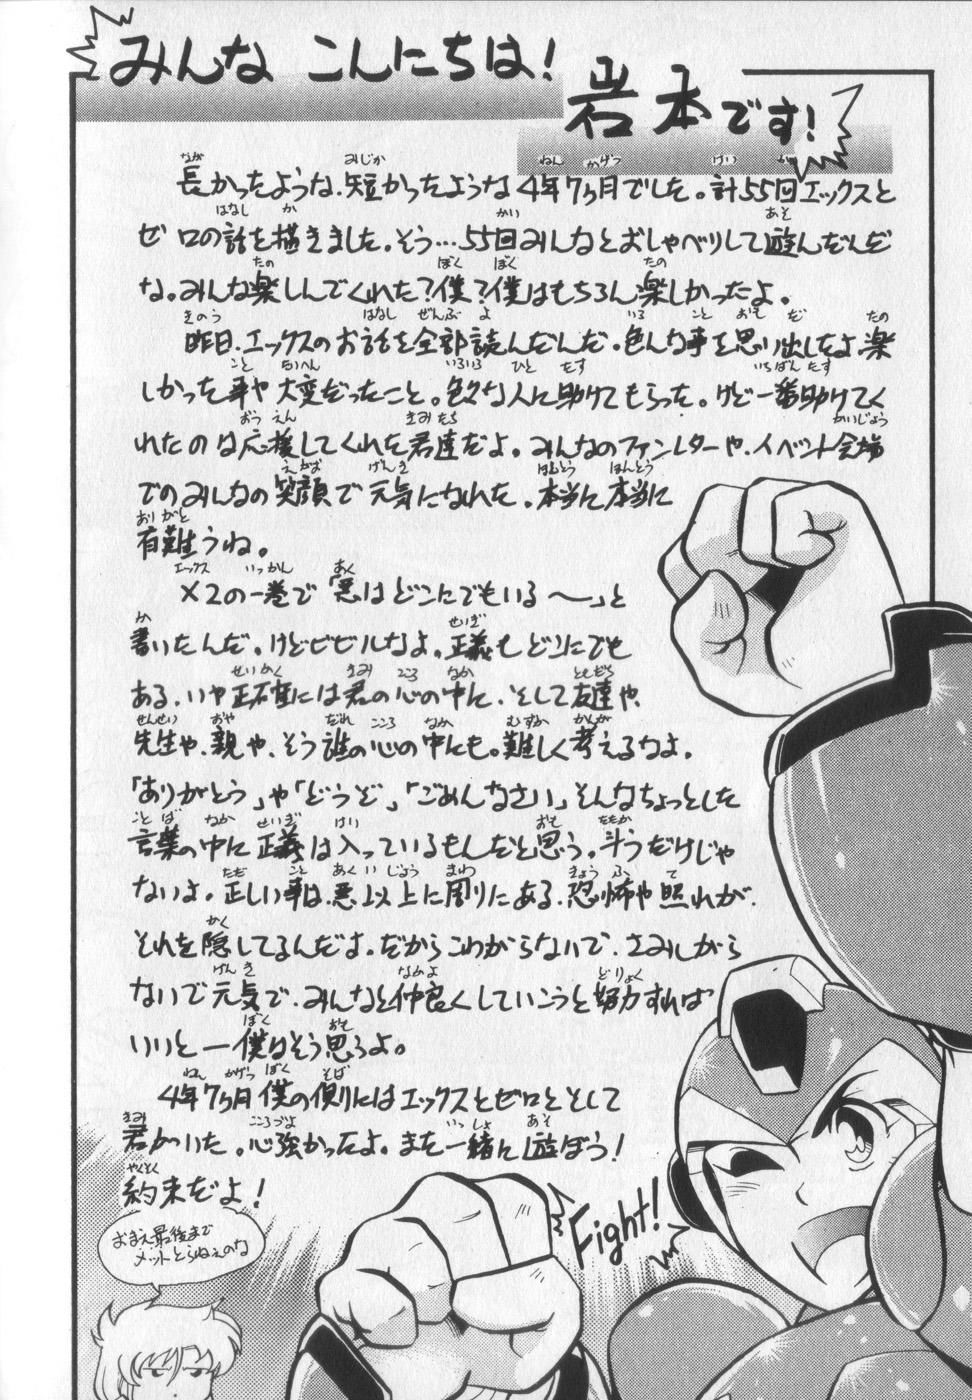 みんな こんにちは!
岩本です!
長かったような、短かったような4年7ヶ月でした。計55回エックスと
ゼロの話を描きました。そう…55回みんなとおしゃべりして遊んだんだ
な。みんな楽しんでくれた?僕?僕はもちろん楽しかったよ。
昨日、エックスのお話を全部読んだんだ。色んな事を思い出したよ楽
しかった事や大変だったこと。色々な人に助けてもらった。けど一番助けてく
れたのは応援してくれた君達だよ。みんなのファンレターや、イベント会場
でのみんなの笑顔で元気になれた。本当に本当に
有難うね。
X2の一巻で「悪はどこにでもいる〜」と
書いたんだ。けどビビルなよ。正義もどこにでも
ある、いや正確には君の心の中に、そして友達や、
先生や、親や、そう誰の心の中にも。難しく考えるなよ。
「ありがとう」や「どうぞ」「ごめんなさい」そんなちょっとした
言葉の中に正義は入っているもんだと思う。斗うだけじゃ
ないよ。正しい事は、悪以上に周りにある、恐怖や照れが、
それを隠してるんだよ。だからこわがらないで、さみしがら
ないで元気で、みんなと仲良くしていこうと努力すれば
いいと—僕はそう思うよ。
4年7ヶ月僕の側にはエックスとゼロとそして
君がいた。心強かったよ。また一緒に遊ぼう!
約束だよ!
おまえ最後まで
メットとらねぇのな
Fight!